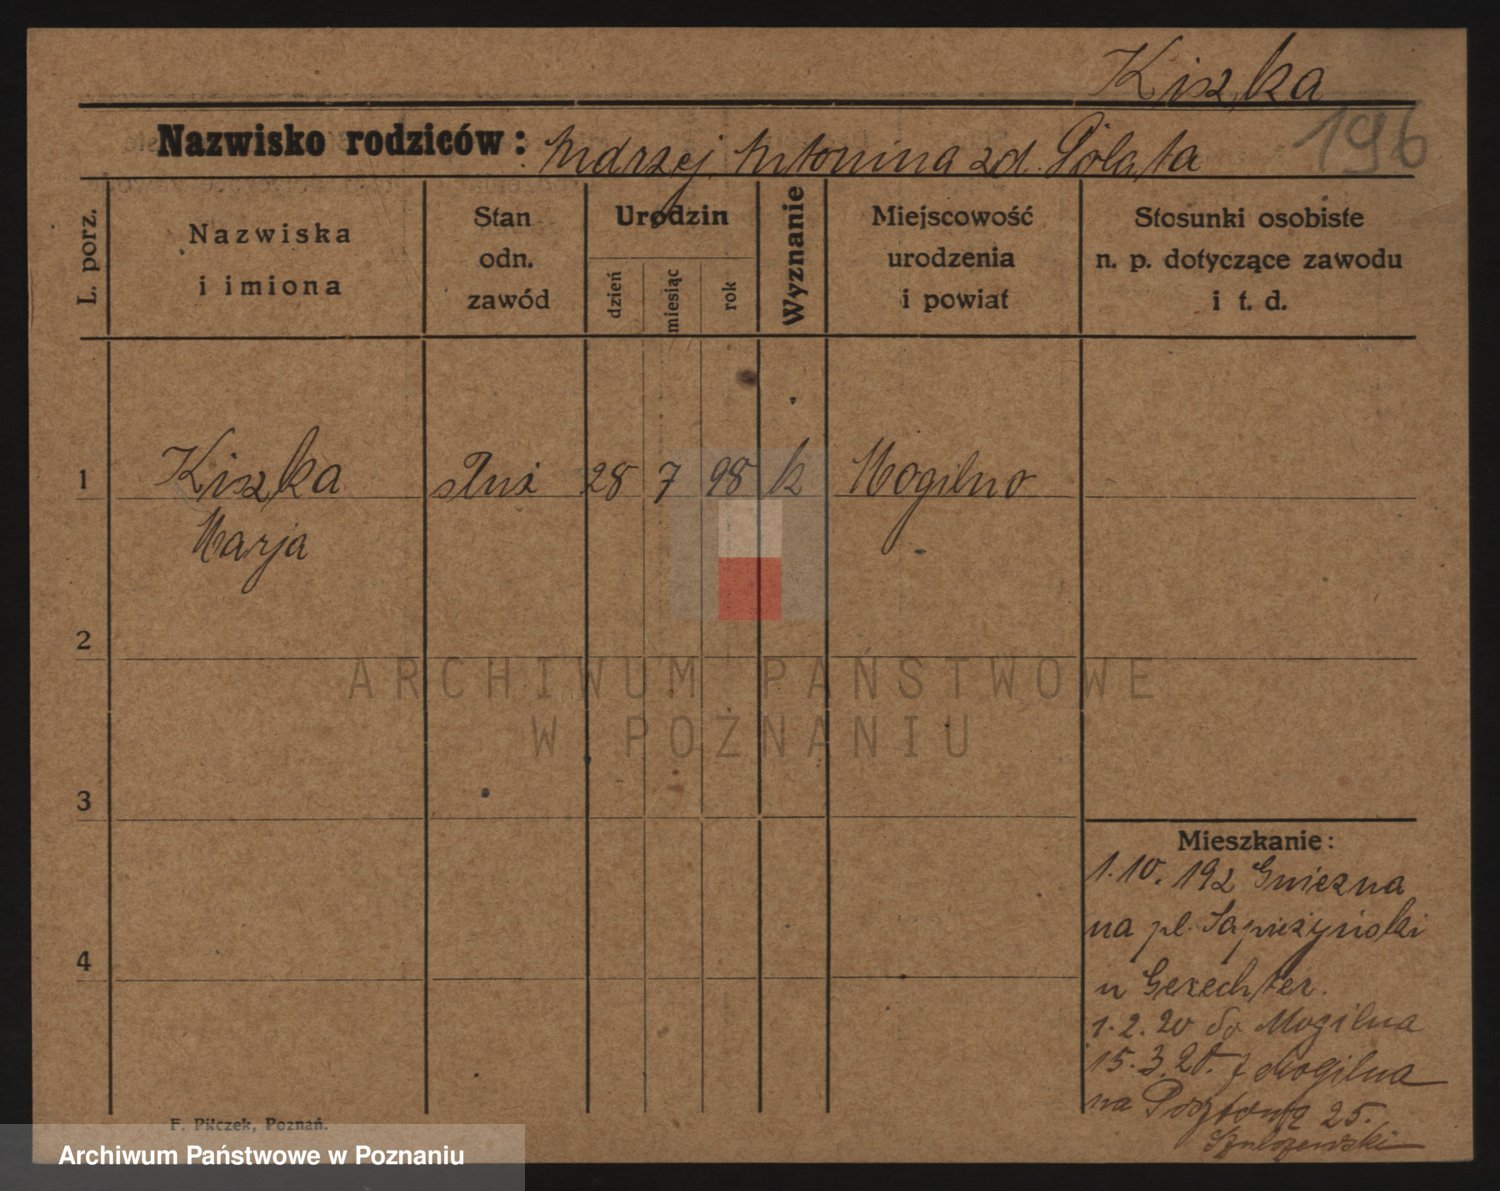 Kiszka
Nazwisko rodziców: Andrzej, Antonina zd. Polata
196
L. porz.
Nazwiska
i imiona
Stan
odn.
zawód
Urodzin
dzień
miesiąc
rok
Wyznanie
Miejscowość
urodzenia
i powiat
Stosunki osobiste
n. p. dotyczące zawodu
i t. d.
1 Kiszka służ 28 7 98 k Mogilno
Marja
2
ARCHIWUM PAŃSTWOWE
W POZNANIU
3
4
Mieszkanie:
1.10.192 Gniezna
na pl. Sapieżyński
u Gerechter.
1.2.20 do Mogilna
15.3.20. z Mogilna
na Pocztową 25.
F. Pilczek, Poznań.
Archiwum Państwowe w Poznaniu